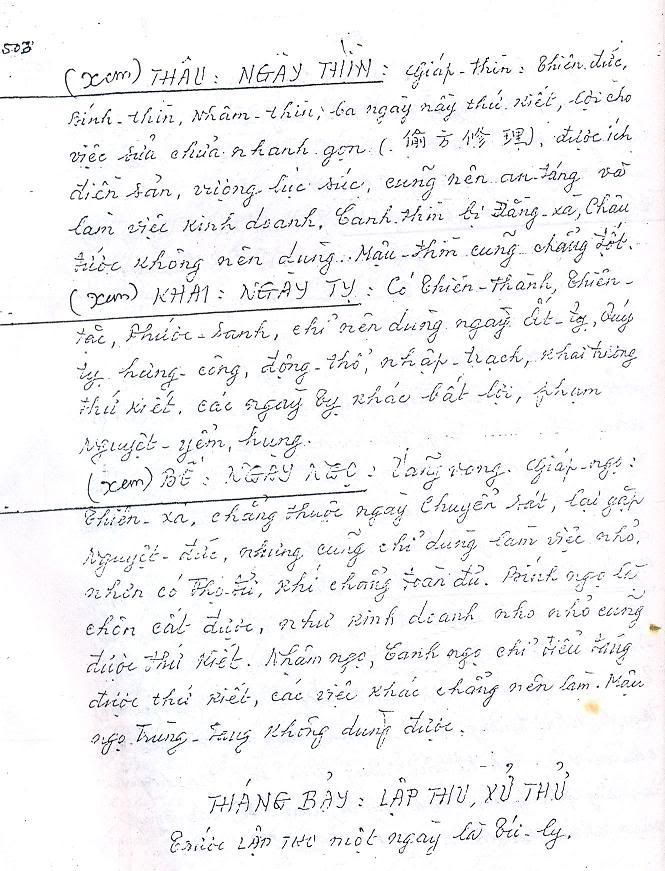 503
(xem) THÂU: NGÀY THÌN: Giáp-thìn: Thiên đức,
Bính-thìn, Nhâm-thìn; ba ngày nầy thứ kiết, lợi cho
việc sửa chữa nhanh gọn (偷方修理), được ích
điền sản, vượng lục súc, cũng nên an-táng và
làm việc kinh doanh, Canh-thìn bị Đằng-xà, Châu
tước không nên dùng. Mậu-thìn cũng chẳng tốt.
(xem) KHAI: NGÀY TỴ: Có Thiên-thành, Thiên-
tặc, Phước-sanh, chỉ nên dùng ngày Ất-tỵ, Quý
tỵ hưng-công, động-thổ, nhập-trạch, khai trương
thứ kiết, các ngày tỵ khác bất lợi, phạm
Nguyệt-yểm, hung.
(xem) BẾ: NGÀY NGỌ: Vãng vong. Giáp-ngọ:
Thiên-xá, chẳng thuộc ngày Chuyển sát, lại gặp
Nguyệt-đức, nhưng cũng chỉ dùng làm việc nhỏ,
nhơn có Thọ-tử, khí chẳng toàn đủ. Bính ngọ là
chôn cất được, như kinh doanh nho nhỏ cũng
được thứ kiết. Nhâm ngọ, Canh ngọ chỉ tiểu táng
được thứ kiết, các việc khác chẳng nên làm. Mậu
ngọ Trùng-tang không dùng được.
THÁNG BẢY: LẬP THU, XỬ THỬ
Trước LẬP THU một ngày là Tứ-ly.